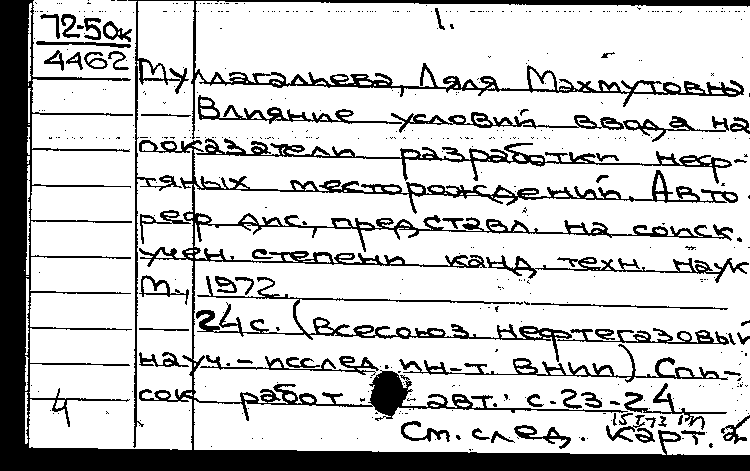 1.
72-50к
4462
Муллагалиева, Ляля Махмутовна.
Влияние условий ввода на
показатели разработки неф-
тяных месторождений. Авто-
реф. дис., представл. на соиск.
учен. степени канд. техн. наук
М., 1972.
24 с. (Всесоюз. нефтегазовый
науч.-исслед. ин-т. ВНИИ). Спи-
сок работ авт.: с. 23-24.
4
См. след. карт. 2